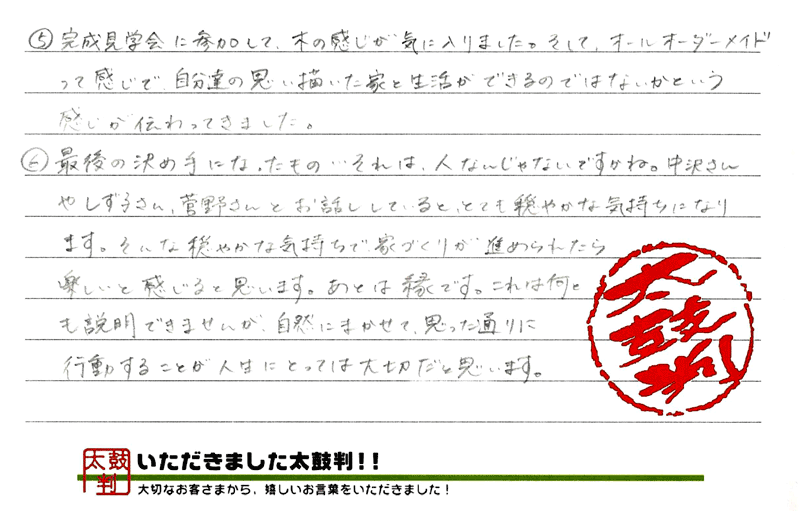 ⑤ 完成見学会に参加して、木の感じが気に入りました。そして、オールオーダーメイド
って感じで、自分達の思い描いた家と生活ができるのではないかという
感じが伝わってきました。
⑥ 最後の決め手になったもの…それは、人なんじゃないですかね。中沢さん
やしず子さん、菅野さんとお話ししていると、とても穏やかな気持ちになり
ます。そんな穏やかな気持ちで家づくりが進められたら
楽しいと感じると思います。あとは縁です。これは何と
も説明できませんが、自然にまかせて、思った通りに
行動することが人生にとっては大切だと思います。
太鼓判
太鼓判
いただきました太鼓判!!
大切なお客さまから、嬉しいお言葉をいただきました!